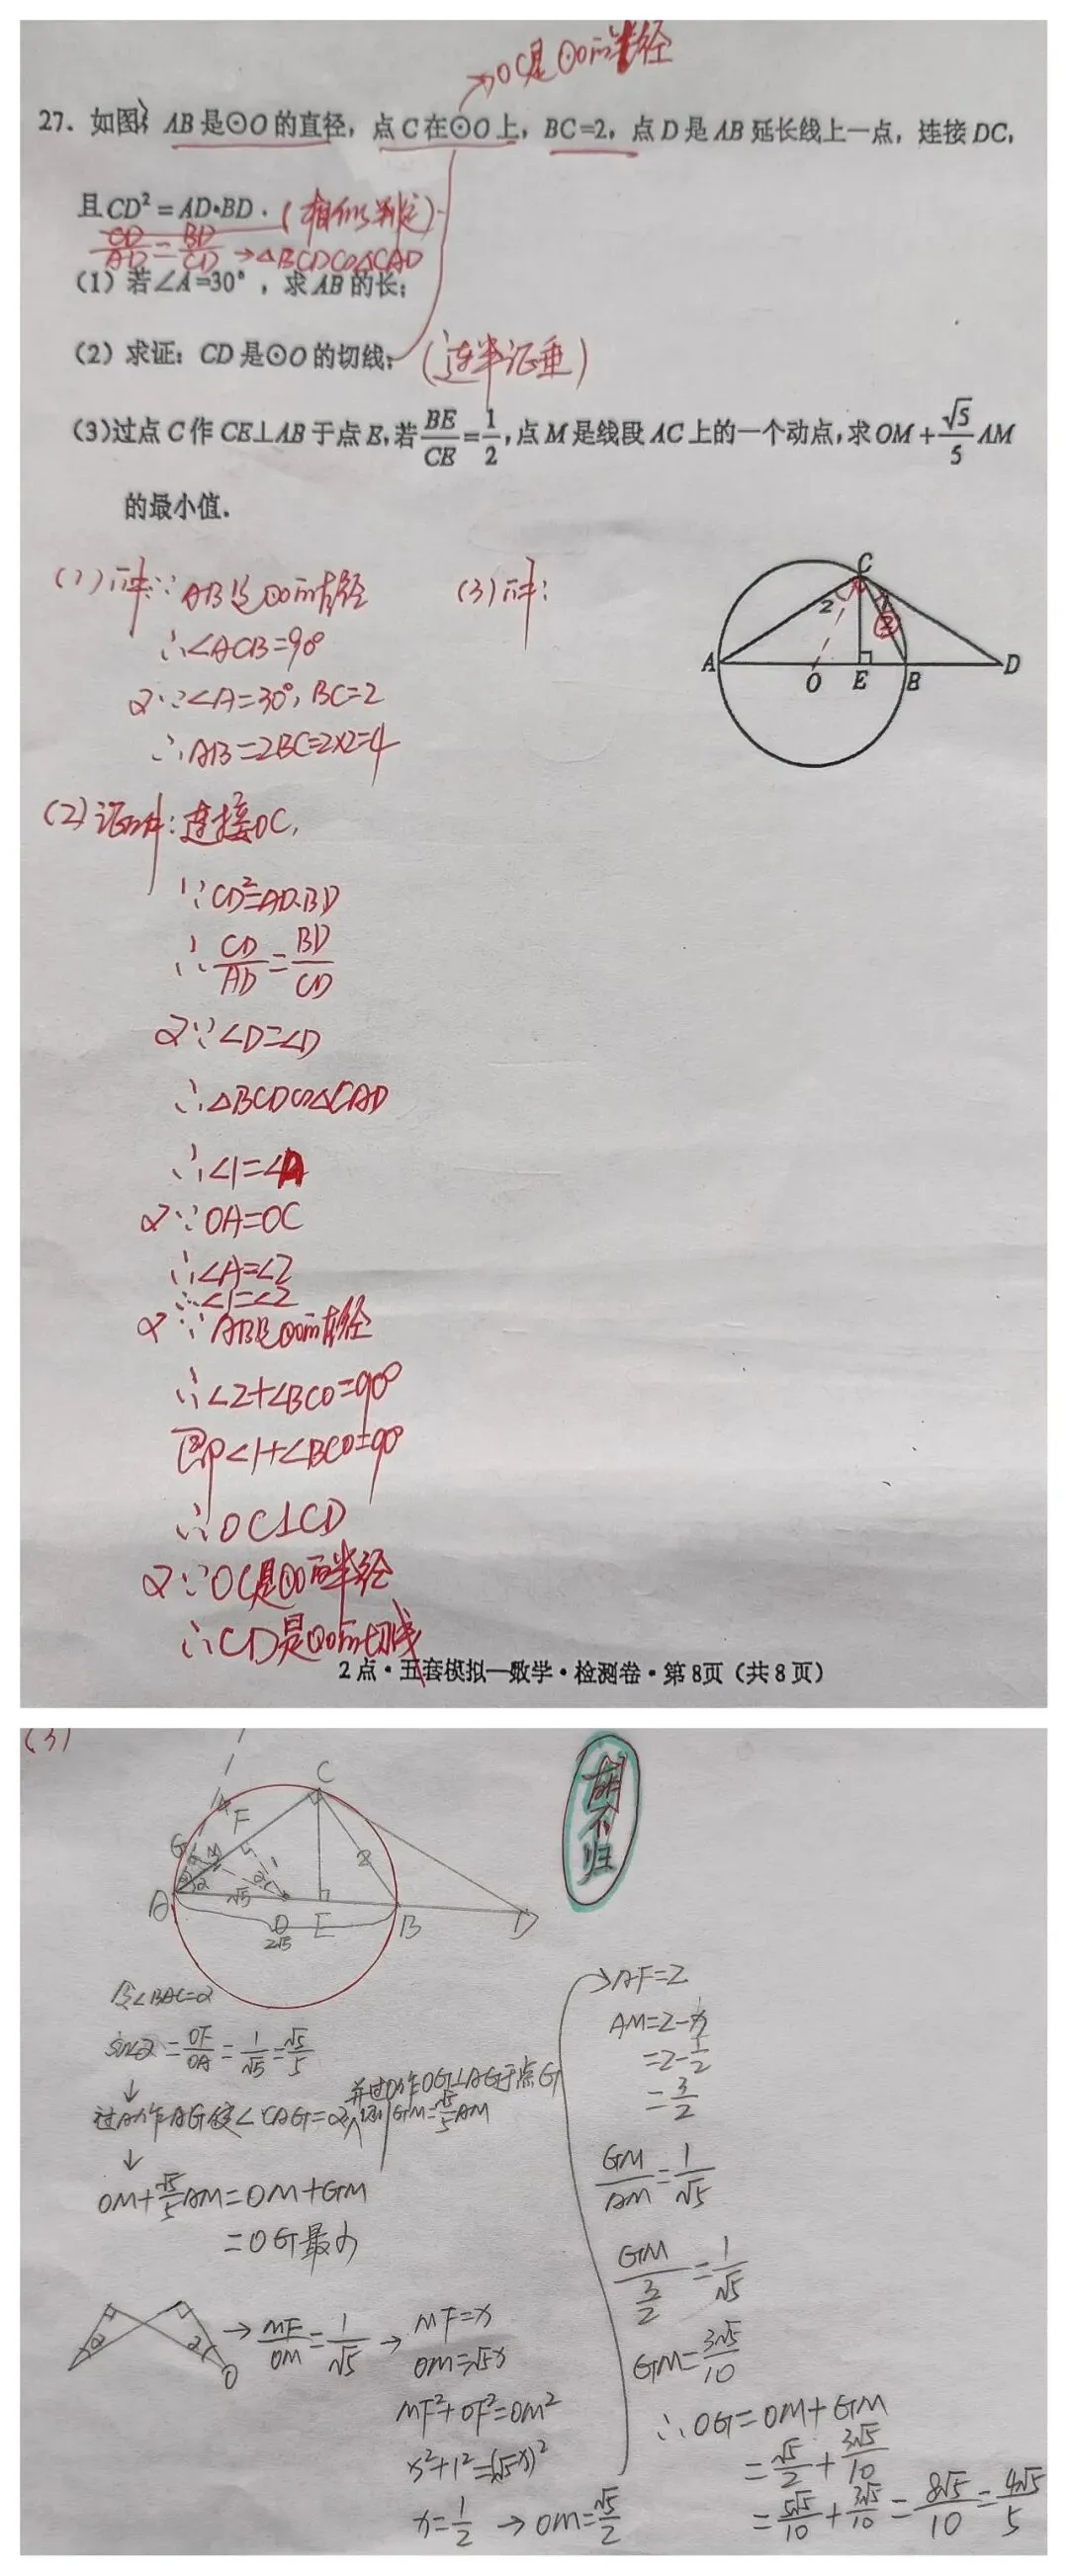 →OC是⊙O的半径
27. 如图, AB是⊙O的直径, 点C在⊙O上, BC=2, 点D是AB延长线上一点, 连接DC,
且CD²=AD•BD. (相似判定)
CD/AD=BD/CD →△BCD∽△CAD
(1) 若∠A=30°, 求AB的长;
(2) 求证: CD是⊙O的切线; (连半证垂)
(3)过点C作CE⊥AB于点E,若BE/CE=1/2,点M是线段AC上的一个动点,求OM+√5/5AM
的最小值.
(1)解:∵AB是⊙O的直径
∴∠ACB=90°
又∵∠A=30°, BC=2
∴AB=2BC=2×2=4
(3)解:
C
2
1
2
A
O
E
B
D
(2)证明:连接OC,
∵CD²=AD.BD
∴CD/AD=BD/CD
又∵∠D=∠D
∴△BCD∽△CAD
∴∠1=∠A
又∵OA=OC
∴∠A=∠2
∴∠1=∠2
又∵AB是⊙O的直径
∴∠2+∠BCO=90°
即∠1+∠BCO=90°
∴OC⊥CD
又∵OC是⊙O的半径
∴CD是⊙O的切线
2点·五套模拟—数学·检测卷·第8页（共8页）
(3)
胡不归
C
F
G
M
2
α
α
√5
A
O
E
B
D
2√5
设∠BAC=α
sinα=OF/OA=1/√5=√5/5
↓
过A作AG使∠CAG=α, 并过O作OG⊥AG于点G
则GM=√5/5AM
↓
OM+√5/5AM=OM+GM
=OG最小
α
α
O
→MF/OM=1/√5→
MF=x
OM=√5x
MF²+OF²=OM²
x²+1²=(√5x)²
x=1/2 →OM=√5/2
→AF=2
AM=2-x
=2-1/2
=3/2
GM/AM=1/√5
GM/(3/2)=1/√5
GM=3√5/10
∴OG=OM+GM
=√5/2+3√5/10
=5√5/10+3√5/10=8√5/10=4√5/5